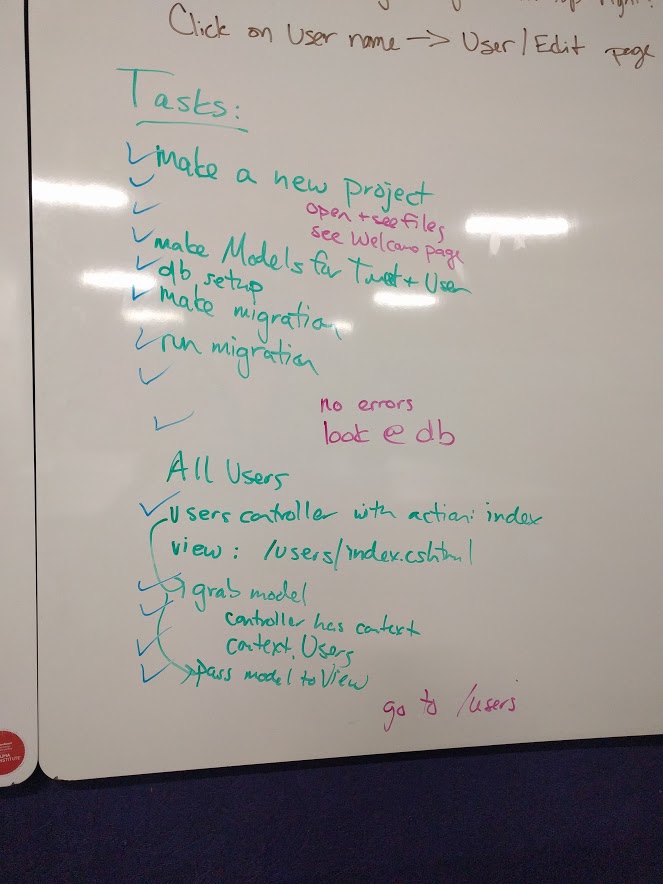 Click on User name → User/Edit page
Tasks:
✓ make a new project
open + see files
see Welcome page
✓ make Models for Tweet + User
✓ db setup
✓ make migration
✓ run migration
no errors
look @ db
All Users
✓ Users controller with action: index
view: /users/index.cshtml
✓ grab model
✓ controller has context
✓ context.Users
✓ pass model to View
go to /users